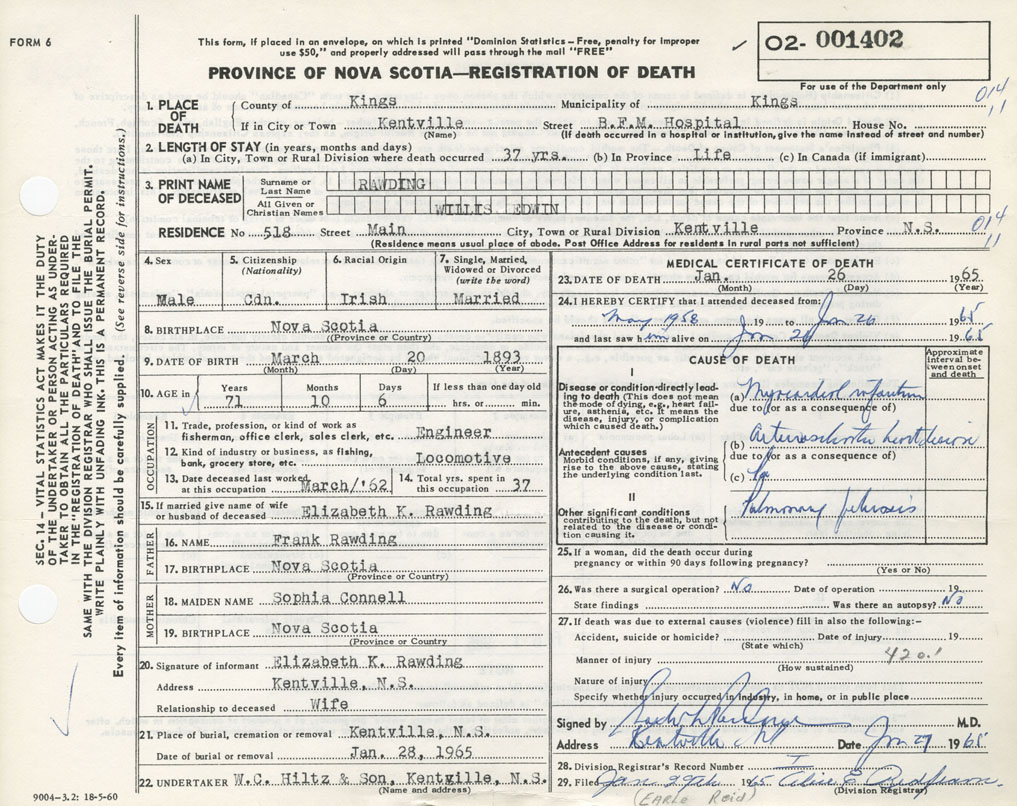 FORM 6
This form, if placed in an envelope, on which is printed "Dominion Statistics—Free, penalty for improper
use $50," and properly addressed will pass through the mail "FREE"
02- 001402
For use of the Department only
PROVINCE OF NOVA SCOTIA—REGISTRATION OF DEATH
014
11
1. PLACE OF DEATH
County of Kings Municipality of Kings
If in City or Town Kentville Street B.F.M. Hospital House No.
(Name) (If death occurred in a hospital or institution, give the name instead of street and number)
2. LENGTH OF STAY (in years, months and days)
(a) In City, Town or Rural Division where death occurred 37 yrs. (b) In Province Life (c) In Canada (if immigrant)
3. PRINT NAME OF DECEASED
Surname or Last Name RAWDING
All Given or Christian Names WILLIS EDWIN
RESIDENCE No 518 Street Main City, Town or Rural Division Kentville Province N.S.
(Residence means usual place of abode. Post Office Address for residents in rural parts not sufficient)
014
11
4. Sex
Male
5. Citizenship
(Nationality)
Cdn.
6. Racial Origin
Irish
7. Single, Married,
Widowed or Divorced
(write the word)
Married
8. BIRTHPLACE Nova Scotia
(Province or Country)
9. DATE OF BIRTH March 20 1893
(Month) (Day) (Year)
10. AGE in
Years Months Days If less than one day old
71 10 6 hrs. or min.
OCCUPATION
11. Trade, profession, or kind of work as
fisherman, office clerk, sales clerk, etc. Engineer
12. Kind of industry or business, as fishing,
bank, grocery store, etc. Locomotive
13. Date deceased last worked
at this occupation March/'62
14. Total yrs. spent in
this occupation 37
15. If married give name of wife
or husband of deceased Elizabeth K. Rawding
FATHER
16. NAME Frank Rawding
17. BIRTHPLACE Nova Scotia
(Province or Country)
MOTHER
18. MAIDEN NAME Sophia Connell
19. BIRTHPLACE Nova Scotia
(Province or Country
20. Signature of informant Elizabeth K. Rawding
Address Kentville, N.S.
Relationship to deceased Wife
21. Place of burial, cremation or removal Kentville, N.S.
Date of burial or removal Jan. 28, 1965
22. UNDERTAKER W.C. Hiltz & Son, Kentville, N.S.
(Name and address)
MEDICAL CERTIFICATE OF DEATH
23. DATE OF DEATH Jan. 26 1965
(Month) (Day) (Year)
24. I HEREBY CERTIFY that I attended deceased from:
May 1958 19 to Jan 26 1965
and last saw him alive on Jan 26 1965
CAUSE OF DEATH
Approximate
interval be-
tween onset
and death
I
Disease or condition directly lead-
ing to death (This does not mean
the mode of dying, e.g., heart fail-
ure, asthenia, etc. It means the
disease, injury, or complication
which caused death.)
(a) Myocardial infarction
due to for as a consequence of
(b) heart disease
Antecedent causes
Morbid conditions, if any, giving
rise to the above cause, stating
the underlying condition last.
due to for as a consequence of
(c)
II
Other significant conditions
contributing to the death, but not
related to the disease or condi-
tion causing it.
Pulmonary fibrosis
25. If a woman, did the death occur during
pregnancy or within 90 days following pregnancy?
(Yes or No)
26. Was there a surgical operation? No Date of operation 19
State findings Was there an autopsy? No
27. If death was due to external causes (violence) fill in also the following:—
Accident, suicide or homicide? Date of injury 19
(State which)
Manner of injury 420.1
(How sustained)
Nature of injury
Specify whether injury occurred in industry, in home, or in public place
Signed by M.D.
Address Kentville NS Date Jan 27 1965
28. Division Registrar's Record Number
29. Filed Jan 29th 1965
(Division Registrar)
(EARLE REID)
SEC. 14—VITAL STATISTICS ACT MAKES IT THE DUTY
OF THE UNDERTAKER OR PERSON ACTING AS UNDER-
TAKER TO OBTAIN ALL THE PARTICULARS REQUIRED
IN THE "REGISTRATION OF DEATH" AND TO FILE THE
SAME WITH THE DIVISION REGISTRAR WHO SHALL ISSUE THE BURIAL PERMIT.
WRITE PLAINLY WITH UNFADING INK. THIS IS A PERMANENT RECORD.
Every item of information should be carefully supplied. (See reverse side for instructions.)
9004-3.2: 18-5-60